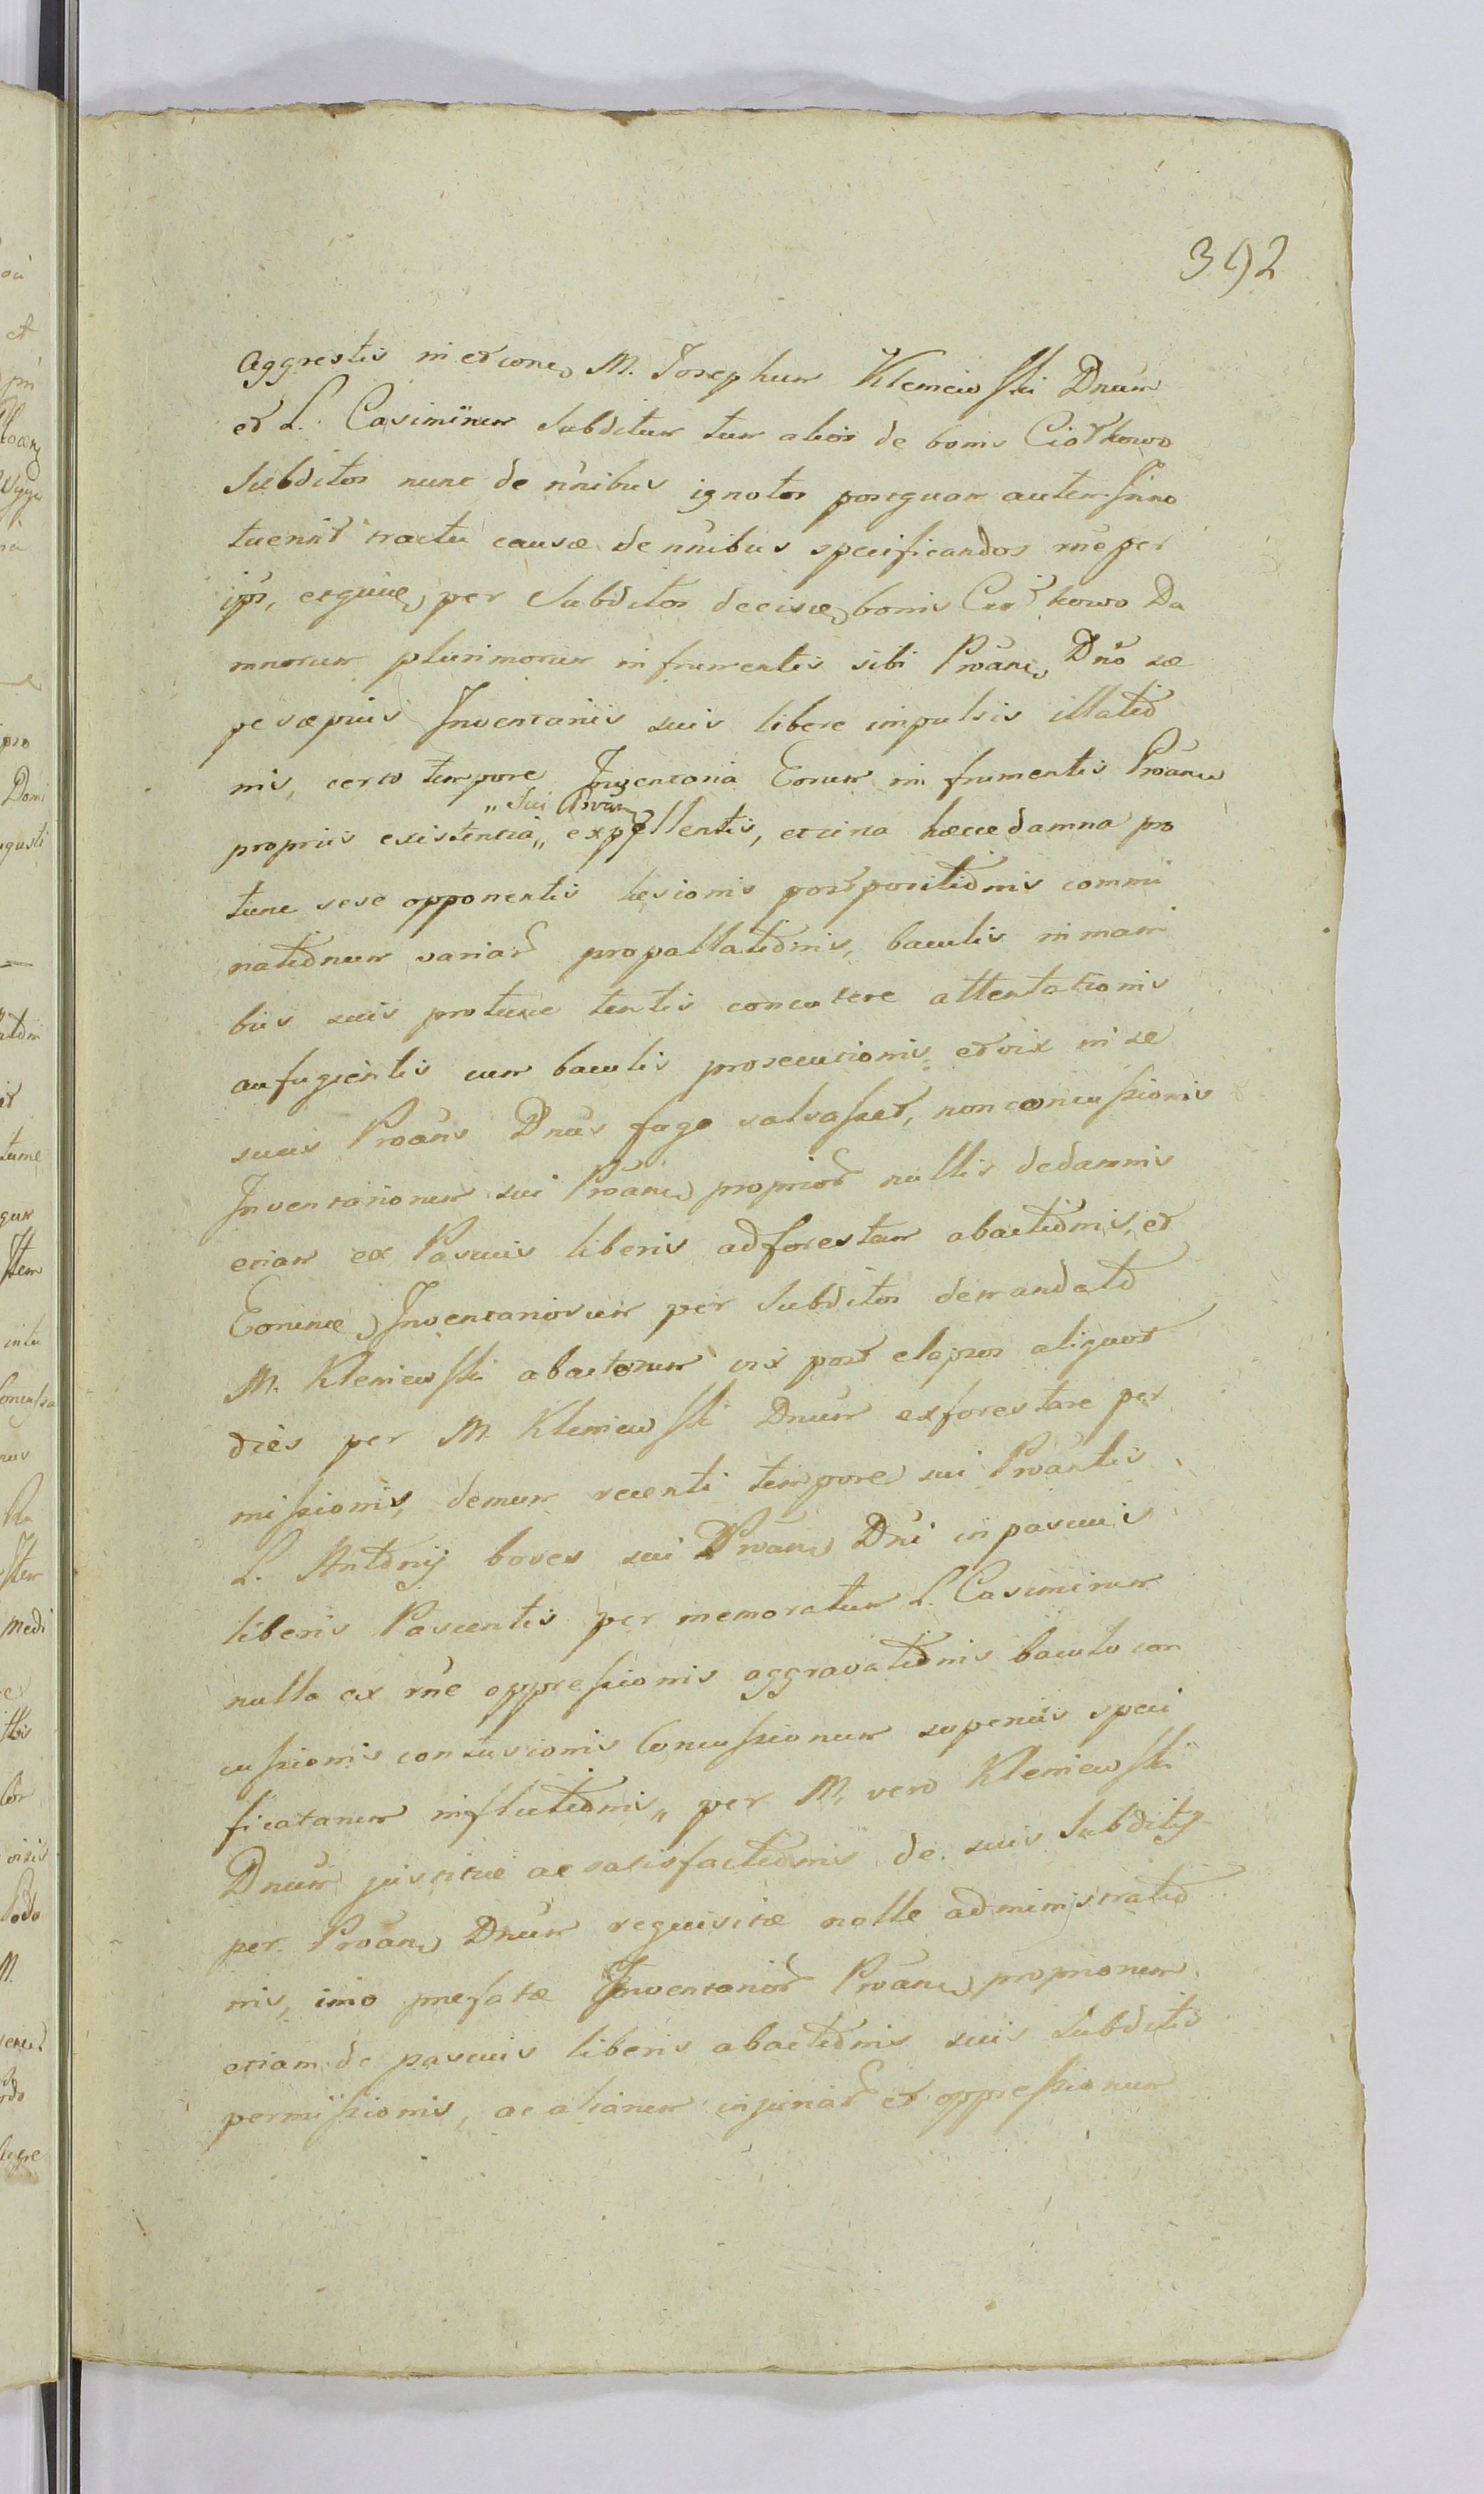 392
Aggrestis in et cone M. Josephum Klemewski Dnum
et L. Casimirum Subditum tum alios de bonis Ciołkowo
Subditos nunc de nnibus ignotos posquam autem Inno
tuerint tractu causæ de nnibus specificandos rne per
ips, per Subditos bonis kowo Da
mnorum plurimorum in frumentis sibi Proane Dno sæ
pe sæpius Inventariis suis libere impulsis illatio
nis, certo tempore Inventaria Eorum in frumentis Proane
„ Sui Proan
propriis existentia „ expellentis, et circa hæcce damna pro
tunc sese opponentis læsionis post positionis commi
nationum variar propallationis, baculis in mani
bus suis protunc tentis concutere attentationis
aufugientis cum baculis prosecutionis, et vix in se
suus Proans Dnus fuga salvasset, non concussionis
Inventariorum sui Proane proprior nullis de damnis
etiam ex Pascuis liberis ad forestam abactionis, et
Eorum Inventariorum per Subditos demandato
M. Klemiewski abactorum vix post elapsos aliquot
dies per M. Klemiewski Dnum exforestare per
missionis, demum recenti tempore sui Proantis
L. Antonij boves sui Proane Dni in pascuis
liberis Pascentis per memoratum L. Casimirum
nulla ex rne oppressionis aggravationis baculo con
cussionis contusionis Concussionum superius speci
ficatarum inflictionis „ per M. vero Klemiewski
Dnum justitiæ ac satisfactionis de suis Subditis
per Proane Dnum requisitæ nolle administratio
nis, imo præfatæ Inventarior Proane propriorum
etiam de pascuis liberis abactionis suis Subditis
permissionis, ac aliarum injuriar et oppressionum